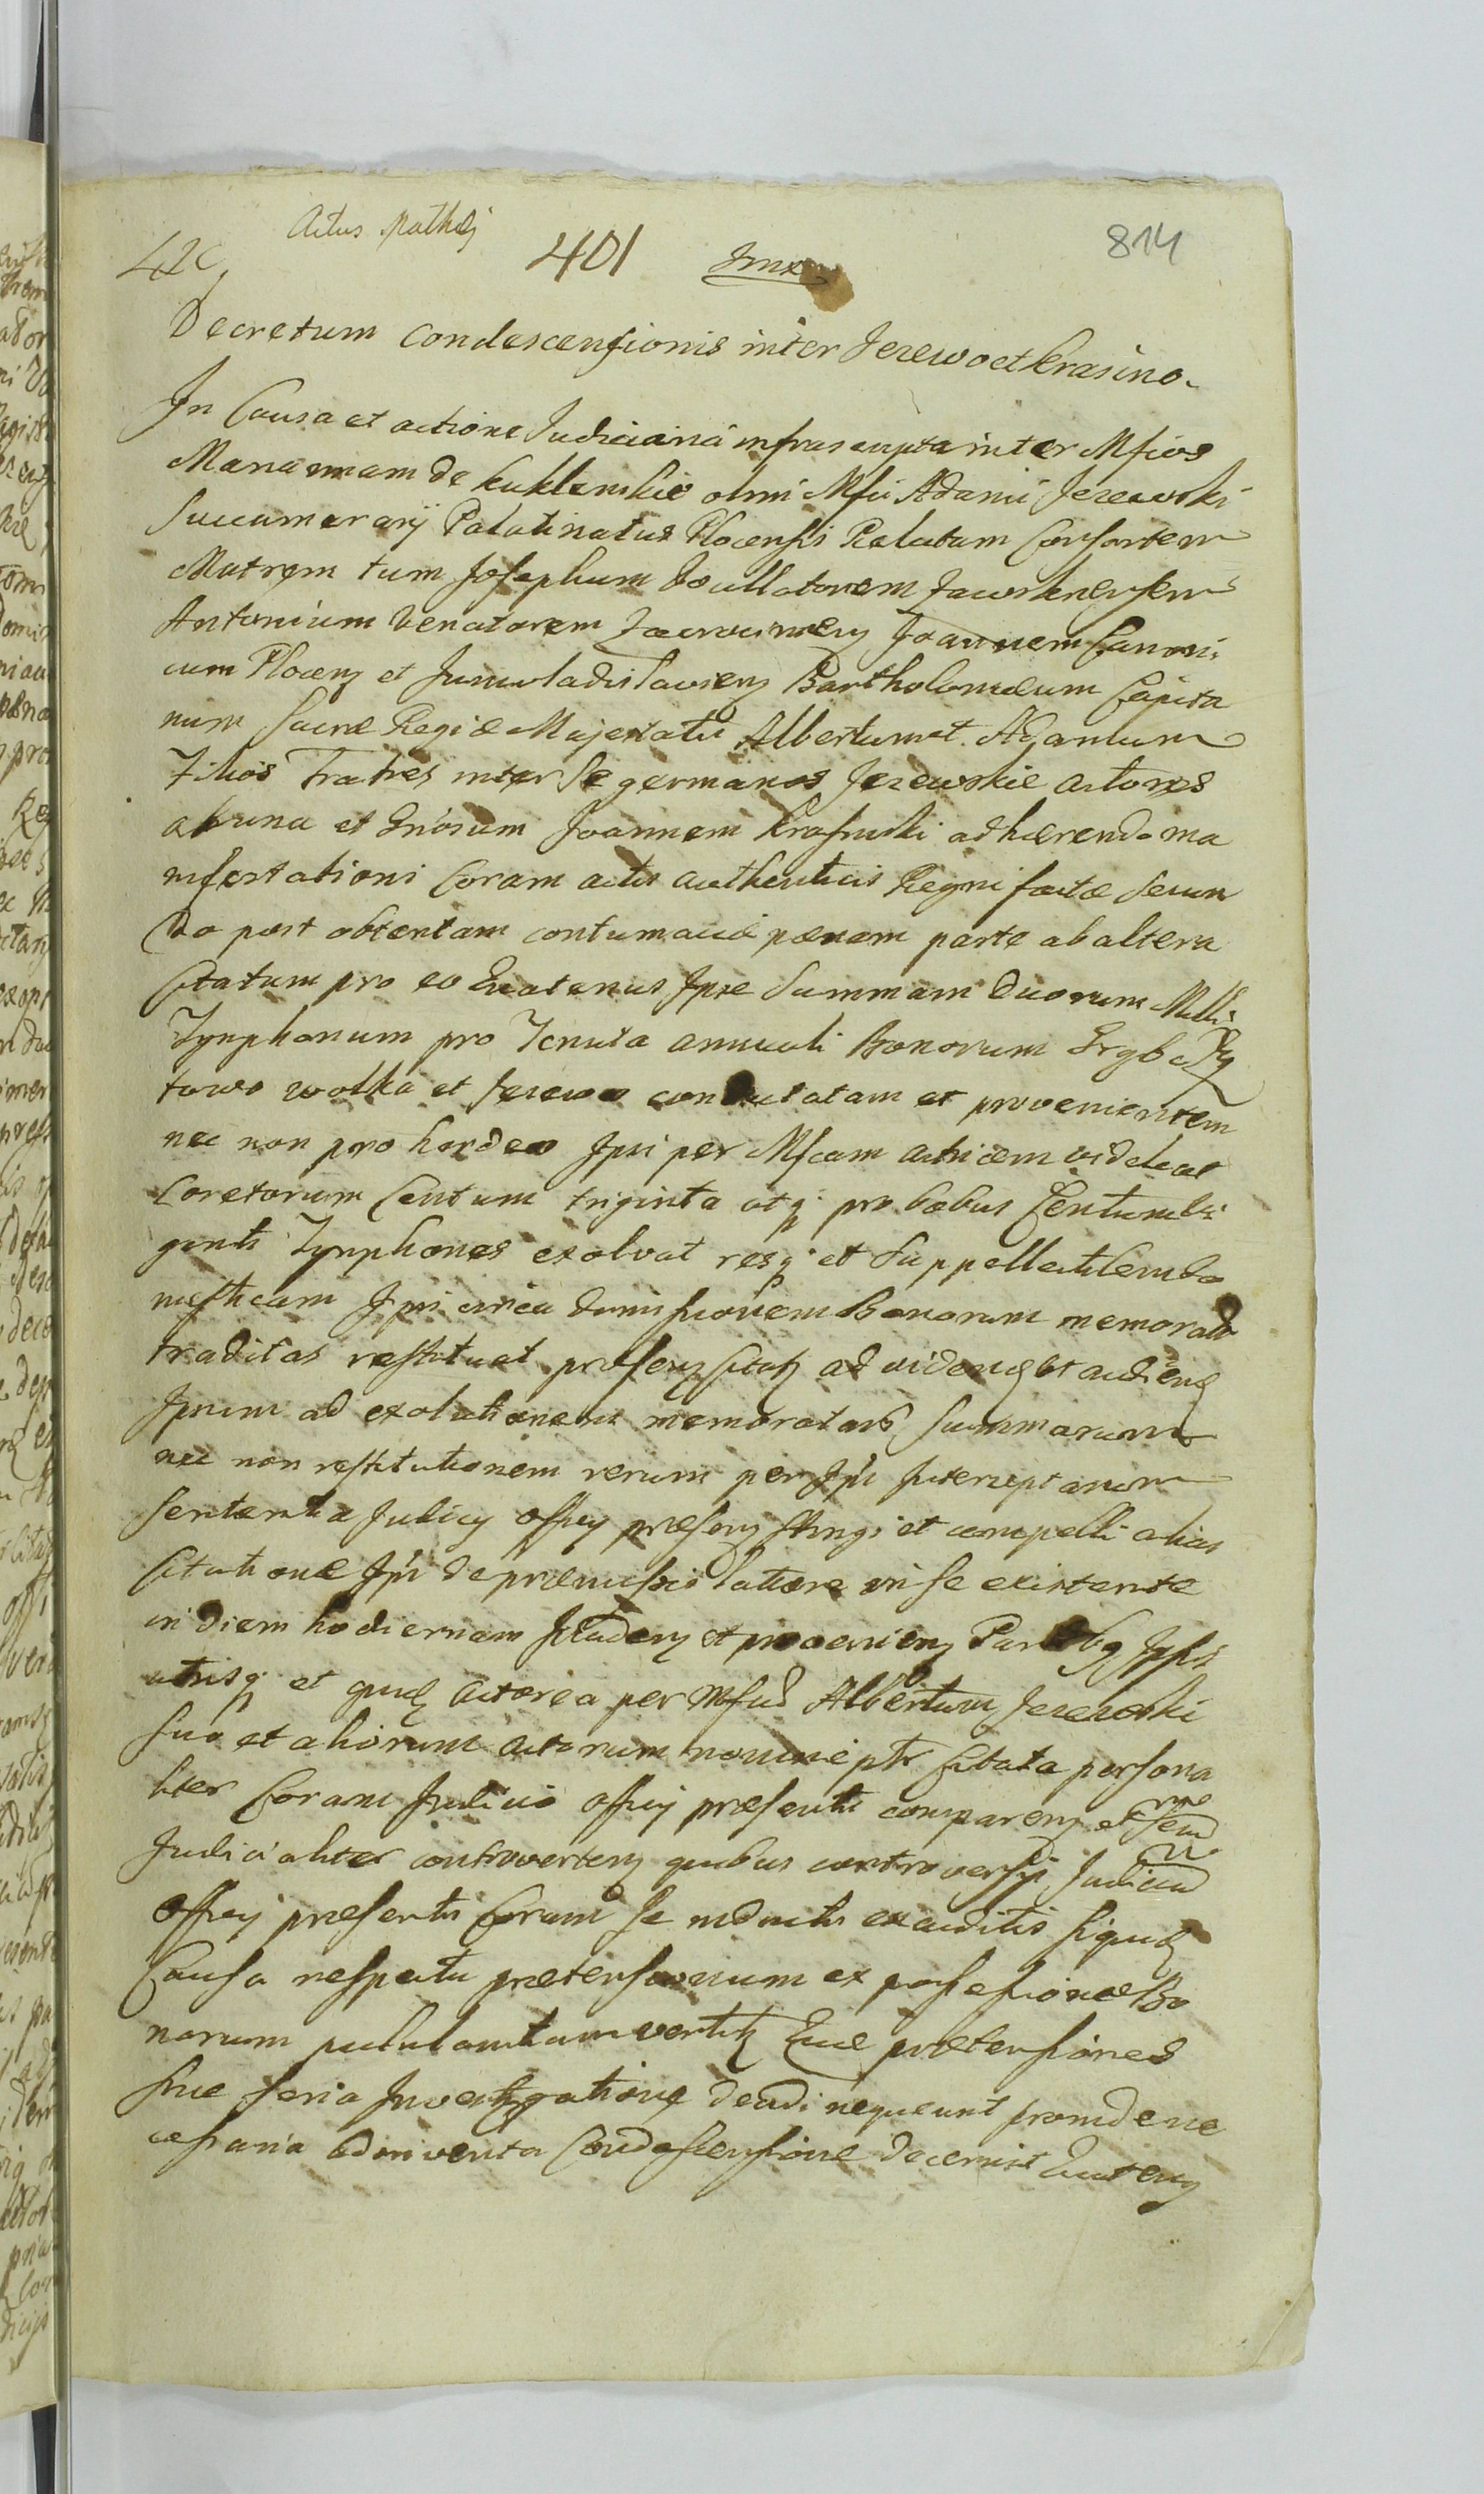 Actus Mathej
401
814
Decretum condescensionis inter Jezewo et Krasino.
In Causa et actione Judiciaria infrascripta inter Mficos
Mariannam de Kuklinskie olim Mfici Adami Jezewski
Succamerarij Palatinatus Plocensis Relictam Consortem
Matrem tum Josephum
Antonium Venatorem Joannem Canoni
cum Plocen et Juniuladislavien Bartholomæum Capita
num Sacræ Regiæ Majestatis Albertum et Adamum
Filios Fratres inter se germanos Jezewskie actores
ab una et Gnosum Joannem Krasinski adhærendo ma
nifestationi Coram actis authenticis Regni factæ secun
do post obtentam contumaciæ pænam parte ab altera
Citatum pro eo Quatenus Ipse Summam duorum Milli
Tynphonum pro Tenuta annuali Bonorum
towo wolka et Jezewo contractatam et provenientem
nec non pro hordeo Ipsi per Mficam actricem videlicet
Coretorum Centum triginta atq pro bobus Centum
ginti Tynphones exolvat resq et Suppellectilem do
mesticam Ipsi circa dimissionem Bonorum memorato
traditas restituat præsen Citat ad viden et audien
Ipsum ad exolutionem memoratar Summarum
nec non restitutionem rerum per Ipsu Interceptarum
sententia Judicij Officij præsen stringi et compelli alias
Citatione Ipsi de præmissis latiore in se existente
in diem hodiernam Inciden et provenien Partibq Ipsis
utrisq et quid actorea per Mficu Albertum Jezewski
suo et aliorum actorum nomine ptr Citata persona
liter Coram Judicio Officij præsentis comparen et
Judicialiter controverten quibus controversijs Judiciu
Officij præsentis Coram se inductis exauditis siquid
Causa respectu prætensionum ex possessione Bo
norum pululantium vertit Quæ prætensiones
sine seria Investigatione decidi nequeunt proinde ne
cessaria adinventa Condescensione decernit Quaten